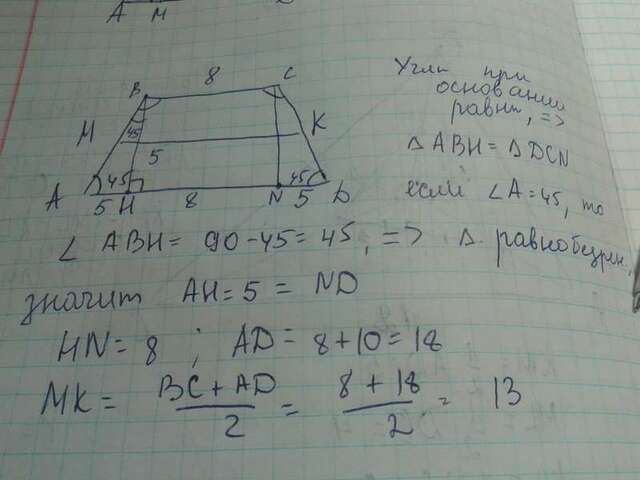 A M
8
B C
M 45 K
5
A 45 45 D
5 H 8 N 5
Углы при
основании
равны, =>
Δ ABH = Δ DCN
если ∠A = 45, то
∠ ABH = 90 - 45 = 45, => Δ равнобедрен,
значит AH = 5 = ND
HN = 8 ; AD = 8 + 10 = 18
MK = BC + AD / 2 = 8 + 18 / 2 = 13